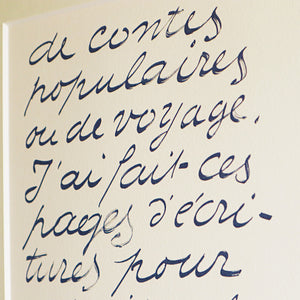 de contes
populaires
ou de voyage.
J'ai fait ces
pages d'écri-
tures pour